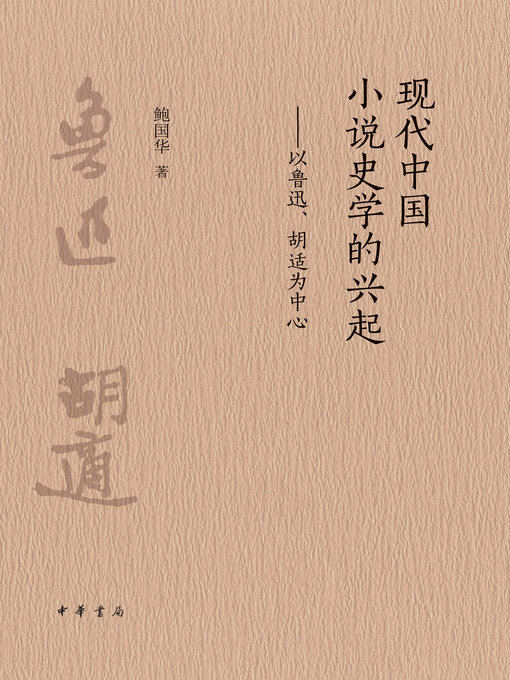 现代中国
小说史学的兴起
——以鲁迅、胡适为中心
鲍国华 著
鲁迅
胡適
中华书局